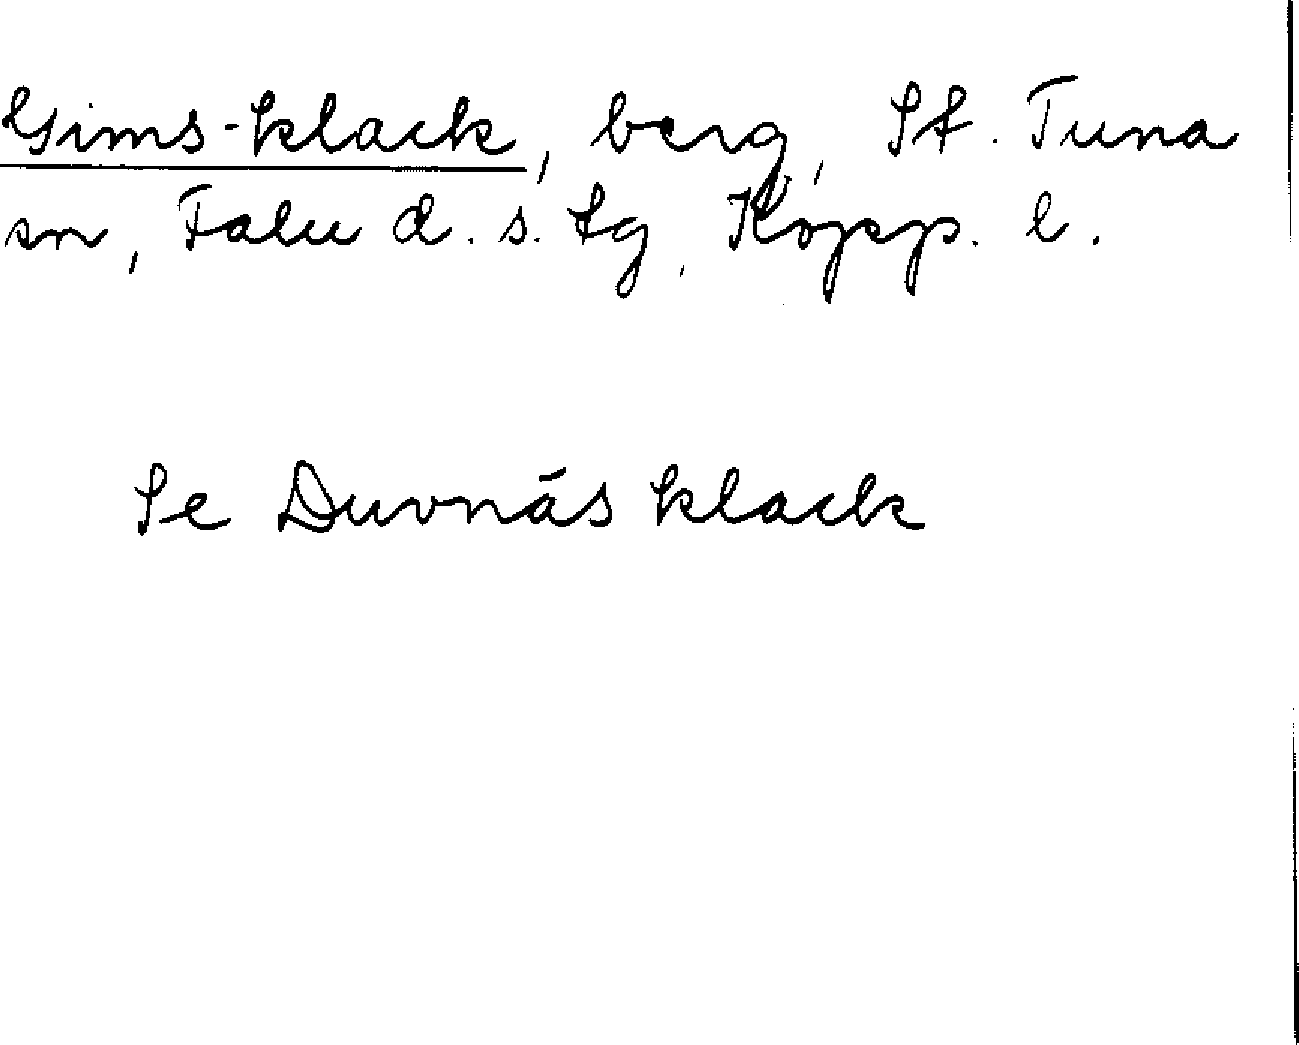 Gims-klack, berg, St. Tuna
sn, Falu d. s. tg, Kopp. l.
Se Duvnäs klack